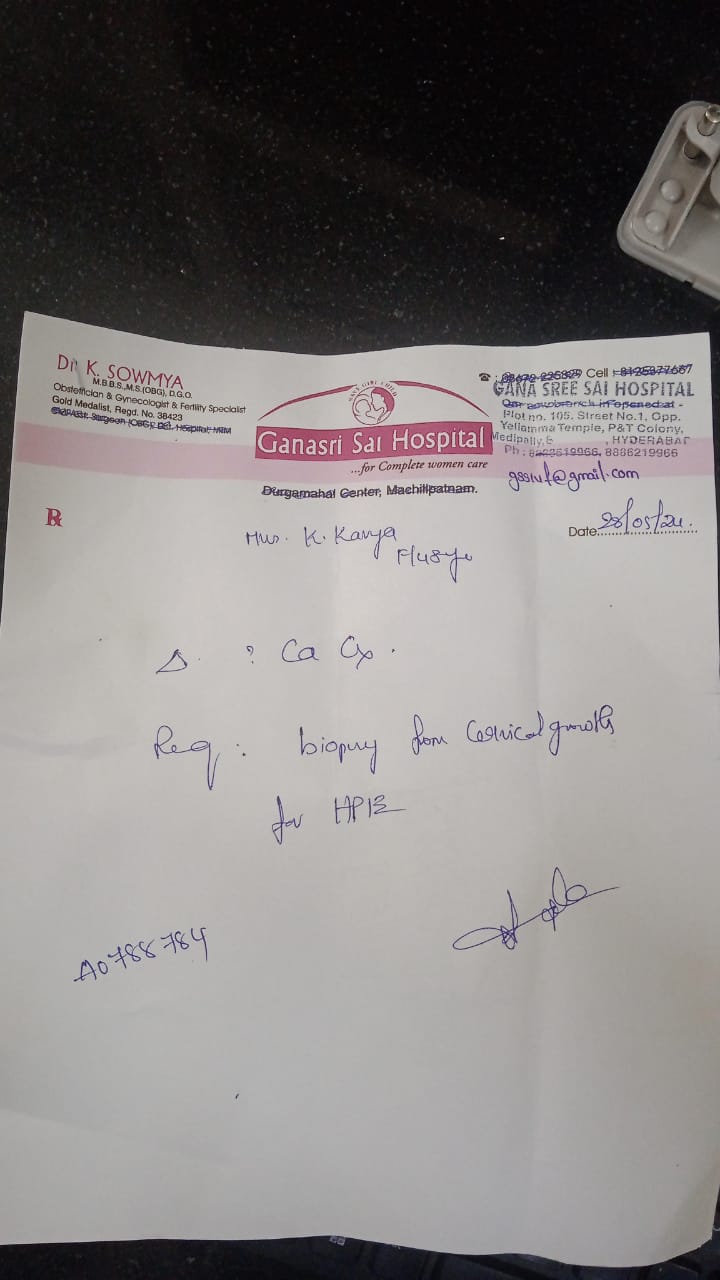 Dr. K. SOWMYA
M.B.B.S.,M.S.(OBG), D.G.O.
Obstetrician & Gynecologist & Fertility Specialist
Gold Medalist, Regd. No. 38423
SAVE GIRL CHILD
Ganasri Sai Hospital
...for Complete women care
Durgamahal Center, Machilipatnam.
Cell : 8125377687
GANA SREE SAI HOSPITAL
Plot no. 105, Street No.1, Opp.
Yellamma Temple, P&T Colony,
Medipally, HYDERABAD
Ph : 8886219966
@gmail.com
Rx
Date 28/05/24.
Mrs. K. Kavya
F/48yr
Δ. : ? Ca Cx.
Req : biopsy from Cervical growth
for HPE
A0788784